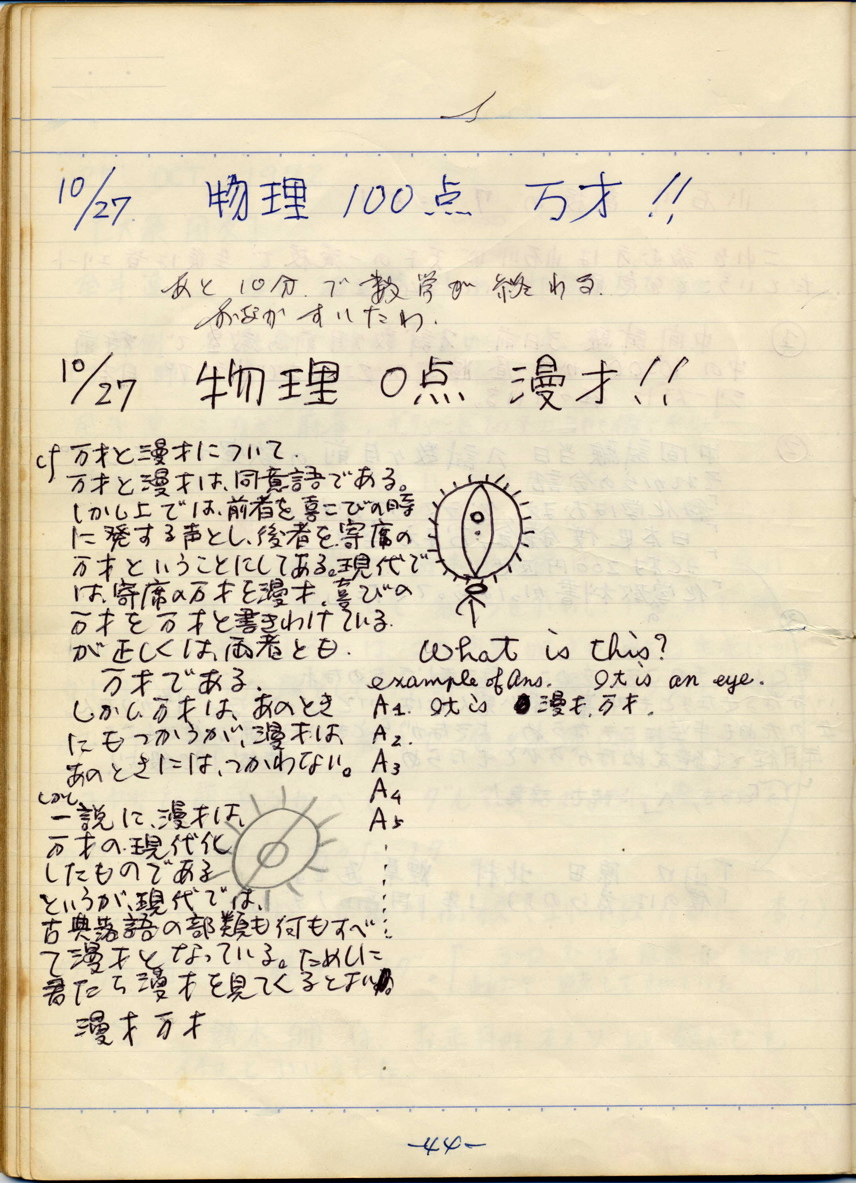 10/27 物理 100点 万才!!
あと 10分 で 数学が 終わる.
おなか すいたわ.
10/27 物理 0点 漫才!!
cf 万才と漫才について.
万才と漫才は、同意語である。
しかし上では、前者を喜こびの時
に発する声とし、後者を寄席の
万才ということにしてある。現代で
は、寄席の万才を漫才、喜びの
万才を万才と書きわけている.
が正しくは、両者とも.
万才である.
しかし万才は、あのとき
にもつかうが、漫才は、
あのときには、つかわない。
しかし
一説に、漫才は、
万才の現代化
したものである
というが、現代では、
古典落語の部類も何もすべ
て漫才となっている。ためしに
君たち漫才を見てくるとよい。
漫才 万才
What is this?
example of Ans. It is an eye.
A1. It is 漫才, 万才.
A2.
A3
A4
A5
-44-